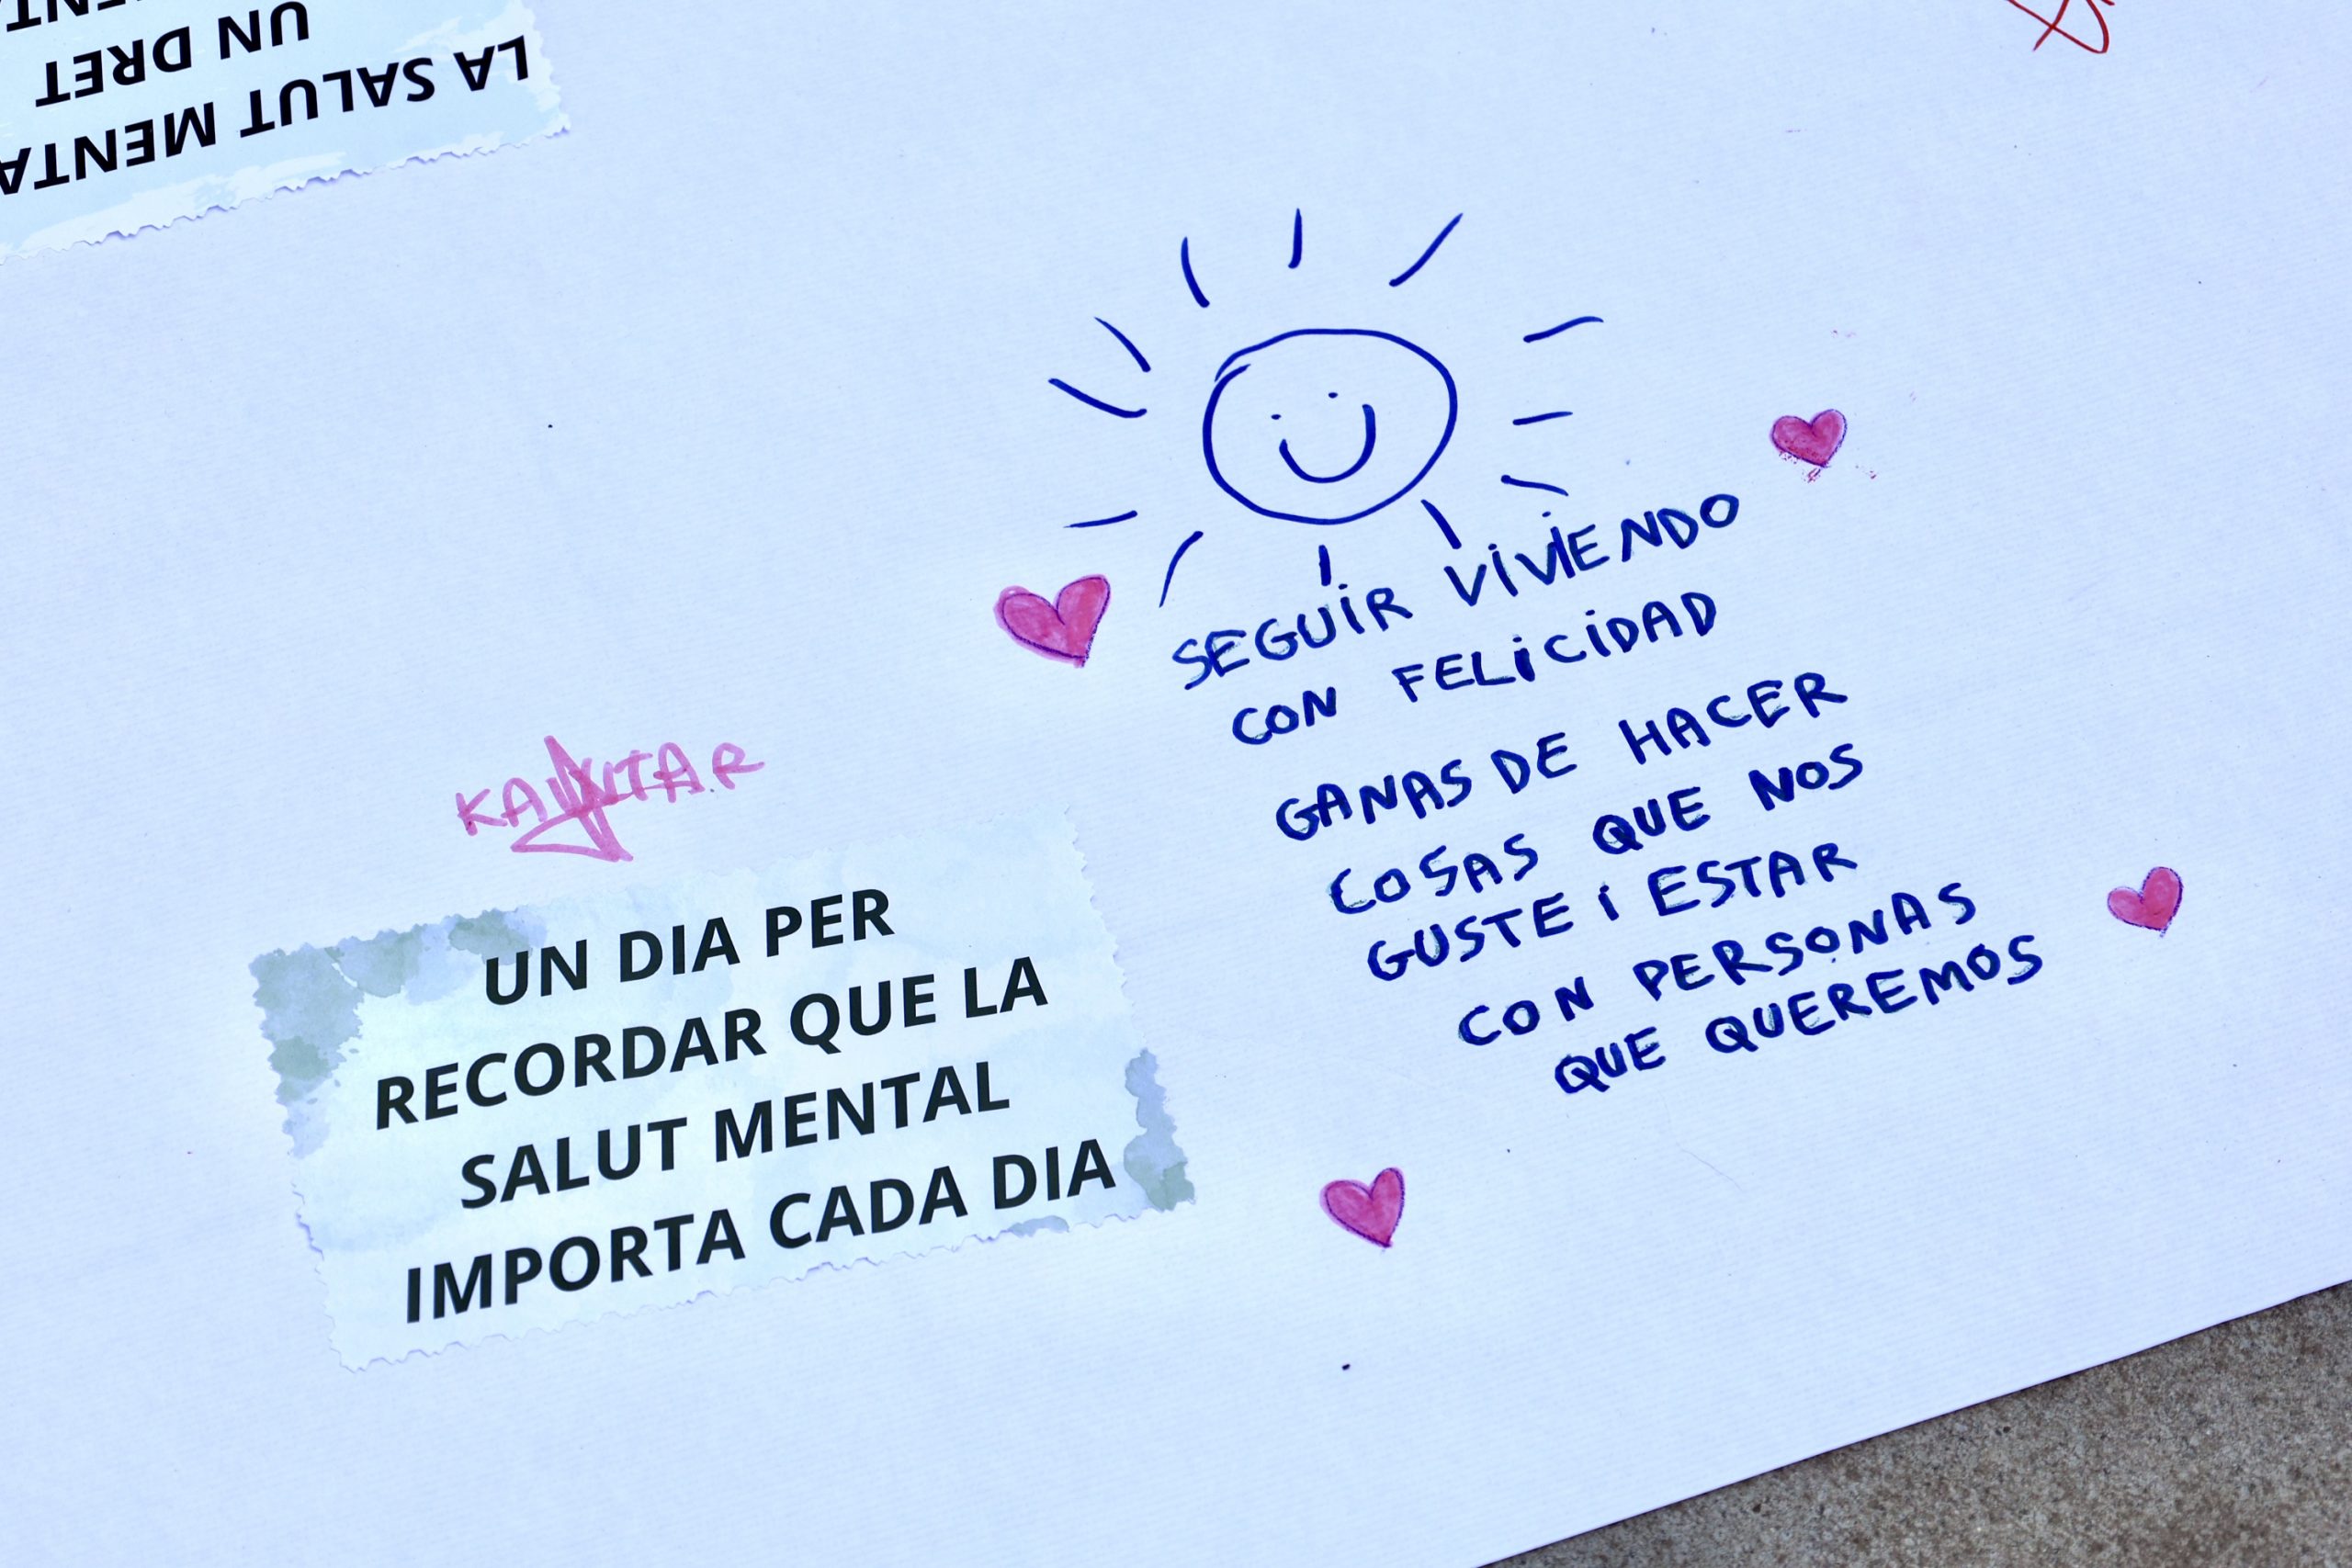 LA SALUT MENTA
UN DRET
SEGUIR VIVIENDO
CON FELICIDAD
GANAS DE HACER
COSAS QUE NOS
GUSTE i ESTAR
CON PERSONAS
QUE QUEREMOS
UN DIA PER
RECORDAR QUE LA
SALUT MENTAL
IMPORTA CADA DIA